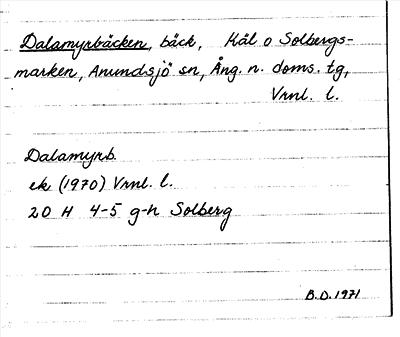 Dalamyrbäcken, bäck, Käl o Solbergs-
marken, Anundsjö sn, Ång. n. doms. tg,
Vrnl. l.
Dalamyrb.
ek (1970) Vrnl. l.
20 H 4-5 g-h Solberg
B.D.1971